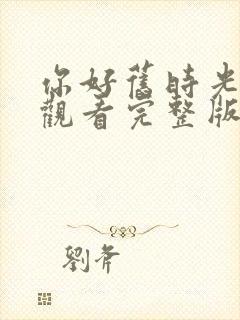 你好舊時光
觀看完整版
劉斧